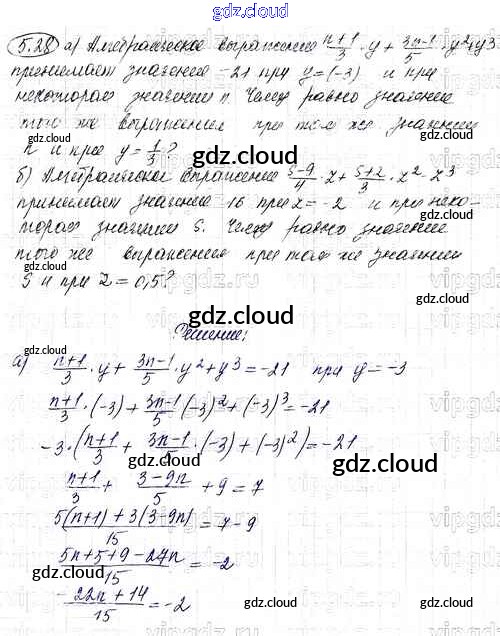 gdz.cloud
5.28 а) Алгебраическое выражение (n+1)/3 · y + (3n-1)/5 · y² + y³
принимает значение -21 при y = (-3) и при
некотором значении n. Чему равно значение
того же выражения при том же значении
n и при y = 1/3?
б) Алгебраическое выражение (s-9)/4 · z + (s+2)/3 · z² - z³
принимает значение 16 при z = -2 и при неко-
тором значении s. Чему равно значение
того же выражения при том же значении
s и при z = 0,5?
Решение:
а) (n+1)/3 · y + (3n-1)/5 · y² + y³ = -21 при y = -3
(n+1)/3 · (-3) + (3n-1)/5 · (-3)² + (-3)³ = -21
-3 · ((n+1)/3 + (3n-1)/5 · (-3) + (-3)²) = -21
(n+1)/3 + (3-9n)/5 + 9 = 7
(5(n+1) + 3(3-9n))/15 = 7 - 9
(5n+5+9-27n)/15 = -2
(-22n+14)/15 = -2